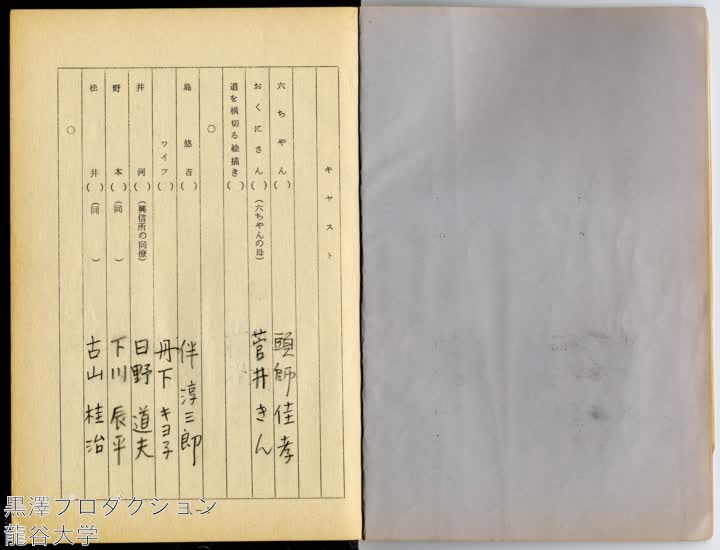 キャスト
六ちゃん（　） 頭師佳孝
おくにさん（　）（六ちゃんの母） 菅井きん
道を横切る絵描き（　）
○
島悠吉（　） 伴淳三郎
ワイフ（　） 丹下キヨ子
井河（　）（興信所の同僚） 日野道夫
野本（　）（同　） 下川辰平
松井（　）（同　） 古山桂治
○
黒澤プロダクション
龍谷大学